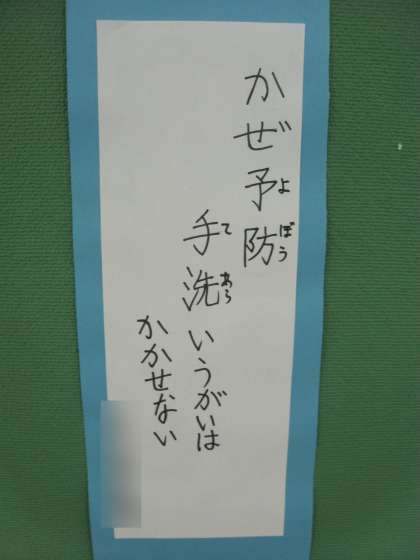 かぜ予防
よぼう
手洗いうがいは
てあら
かかせない